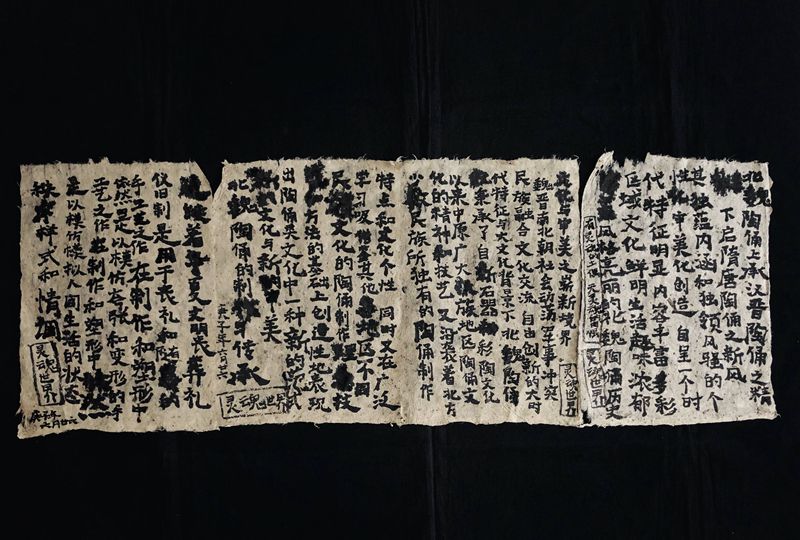 北魏陶俑上承汉晋陶俑之精
下启隋唐陶俑之新风
其独蕴内涵和独领风骚的个
性化审美化创造 自呈一个时
代特征明显 内容丰富多彩
区域文化鲜明生活趣味浓郁
风格亮丽的北魏陶俑历史
灵魂世界
与审美之崭新境界
灵魂世界
魏晋南北朝社会动荡军事冲突
民族融合文化交流 自由创新的大时
代特征与文化背景下 北魏陶俑
秉承了自新石器和彩陶文化
以来中原广大族地区陶俑文
化的精神和技艺 又沿袭着北方
少民族所独有的陶俑制作
特点和文化个性 同时又在广泛
学习吸其它各地区不同
民文化的陶俑制作技
方法的基础上创造性地表现
出陶俑类文化中一种新的尝试
文化与新的审美
北魏陶俑的制与传承
庚子年六月廿六
灵魂世界
着华夏文明丧葬礼
仪旧制是用于丧礼和陪
手工艺之作 在制作和塑形中
依然是以模仿夸张和变形的手
工艺之作 在制作和塑形中
是以模仿模拟人间生活的状态
样式和情调
灵魂世界
庚子年
六月廿六